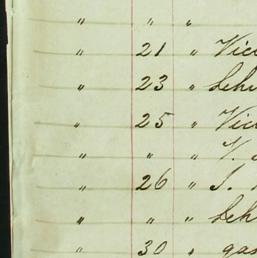 " " "
" 21 " Vic
" 23 " Leh
" 25 " Vic
" " " V.
" 26 " S.
" " " Leh
" 30 " gas